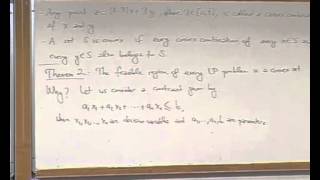 Any point z = (1-λ)x + λy, where λ∈[0,1], is called a convex combination
of x and y
- A set S is convex if every convex combination of every x∈S and
every y∈S also belongs to S.
Theorem 2: The feasible region of every LP problem is a convex set
Why? Let us consider a constraint given by
a₁x₁ + a₂x₂ + ... + aₙxₙ ≤ b,
where x₁, x₂, ..., xₙ are decision variables and a₁, ..., aₙ, b are parameters.